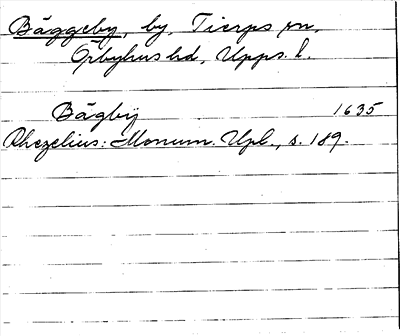 Bäggeby, by, Tierps sn,
Örbyhus hd, Upps. l.
Bägby 1635
Rhezelius: Monum. Upl., s. 189.